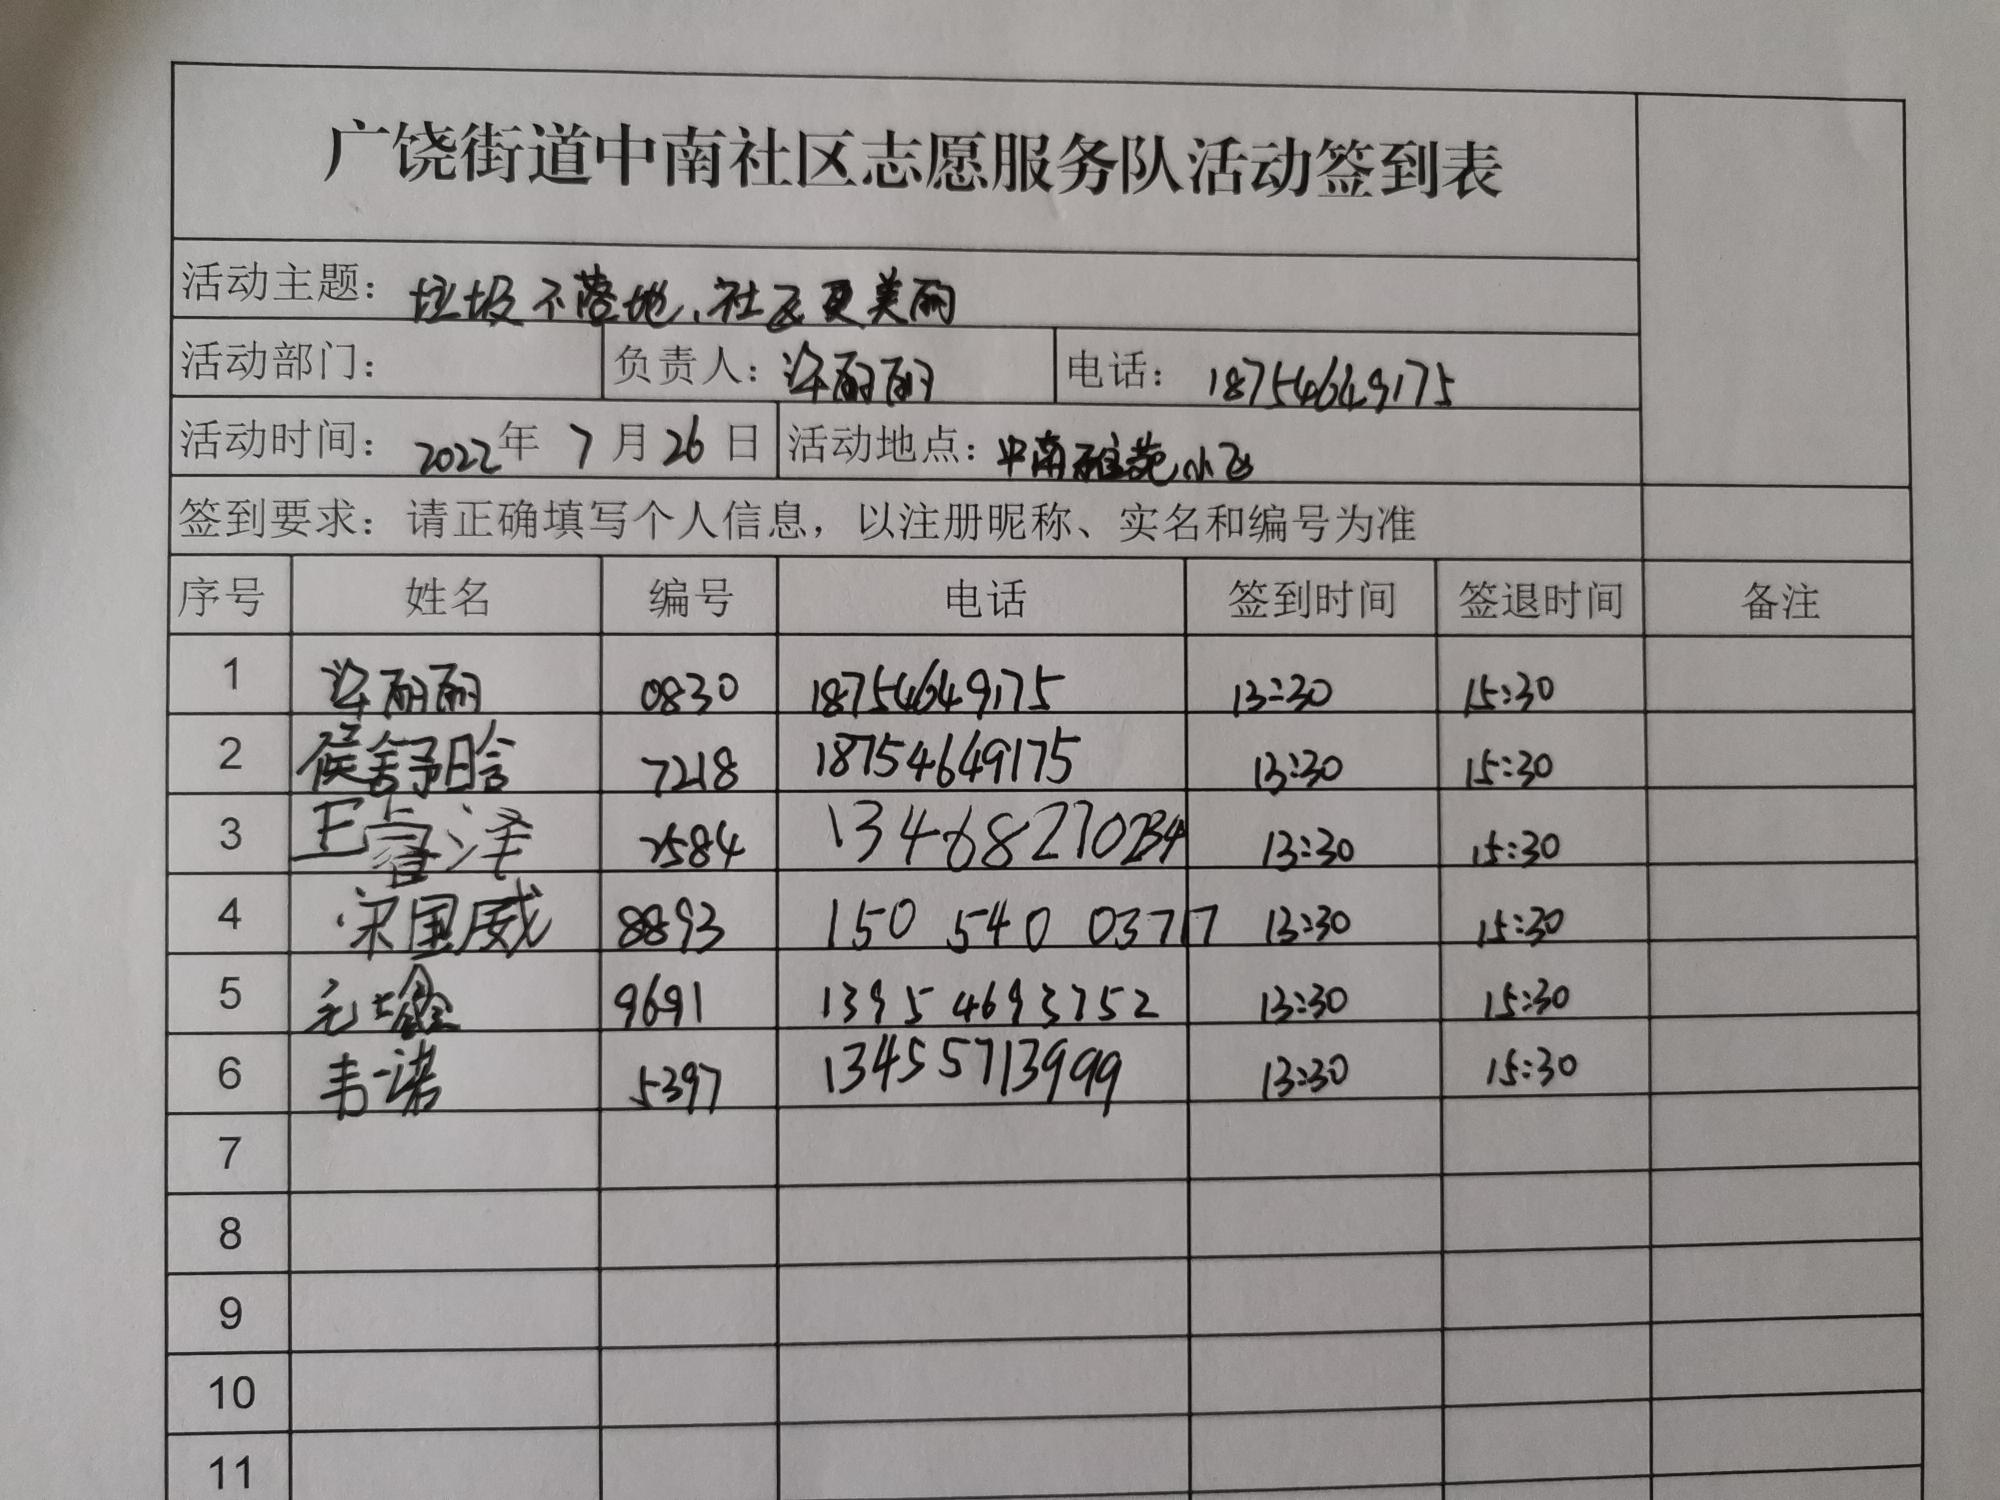 广饶街道中南社区志愿服务队活动签到表
活动主题：垃圾不落地、社区更美丽
活动部门： 负责人：许丽丽 电话：18754649175
活动时间：2022年 7月26日 活动地点：中南雅苑小区
签到要求：请正确填写个人信息，以注册昵称、实名和编号为准
序号 姓名 编号 电话 签到时间 签退时间 备注
1 许丽丽 0830 18754649175 13:30 15:30
2 侯舒晗 7218 18754649175 13:30 15:30
3 王睿泽 7584 13468270234 13:30 15:30
4 宋国威 8893 150 540 03717 13:30 15:30
5 9691 13954693752 13:30 15:30
6 韦一诺 5397 13455713999 13:30 15:30
7
8
9
10
11